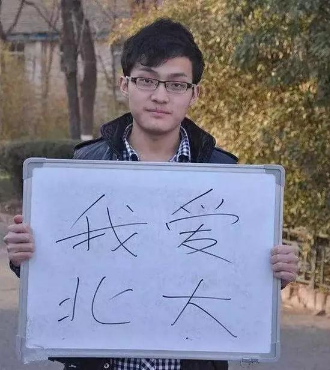 我爱
北大